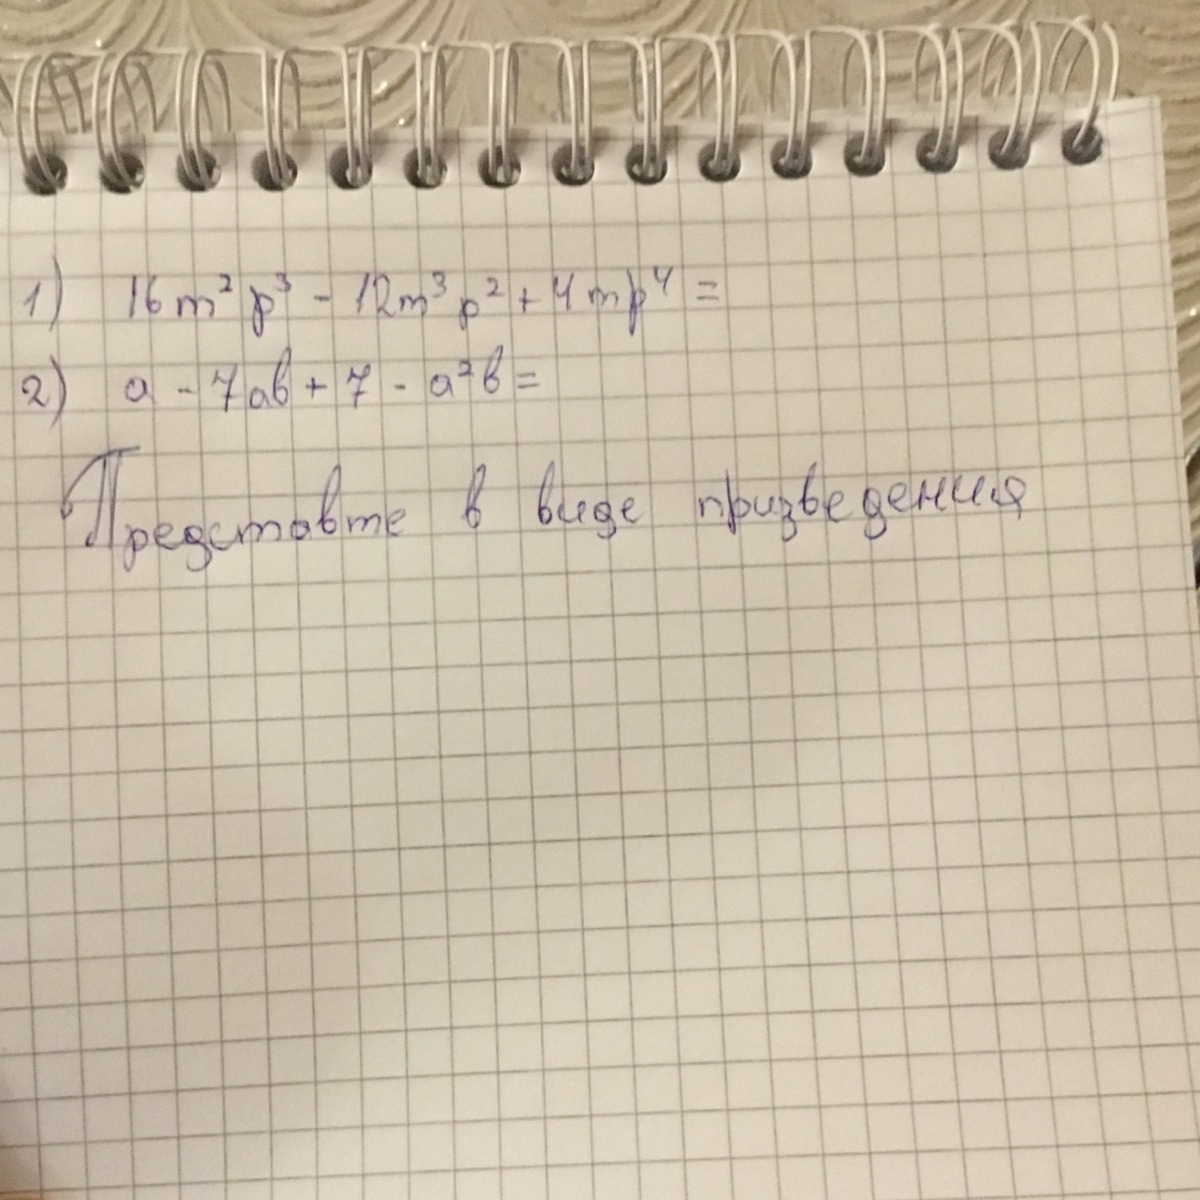 1) 16m²p³ - 12m³p² + 4mp⁴ =
2) a - 7ab + 7 - a²b =
Представте в виде призведения